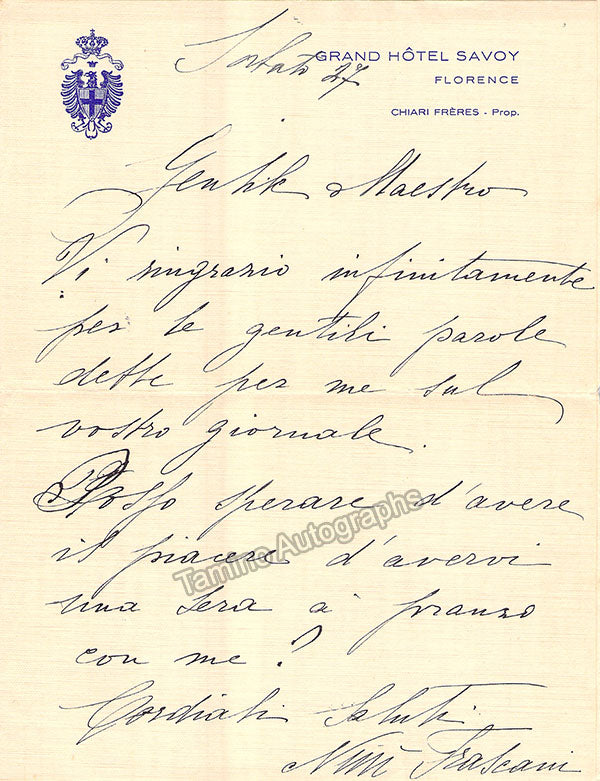 GRAND HÔTEL SAVOY
FLORENCE
CHIARI FRÈRES - Prop.
Sabato 27
Gentile Maestro
Vi ringrazio infinitamente
per le gentili parole
dette per me sul
vostro giornale.
Posso sperare d'avere
il piacere d'avervi
una sera a pranzo
con me?
Cordiali Saluti
Nini Frascani
Tamino Autographs